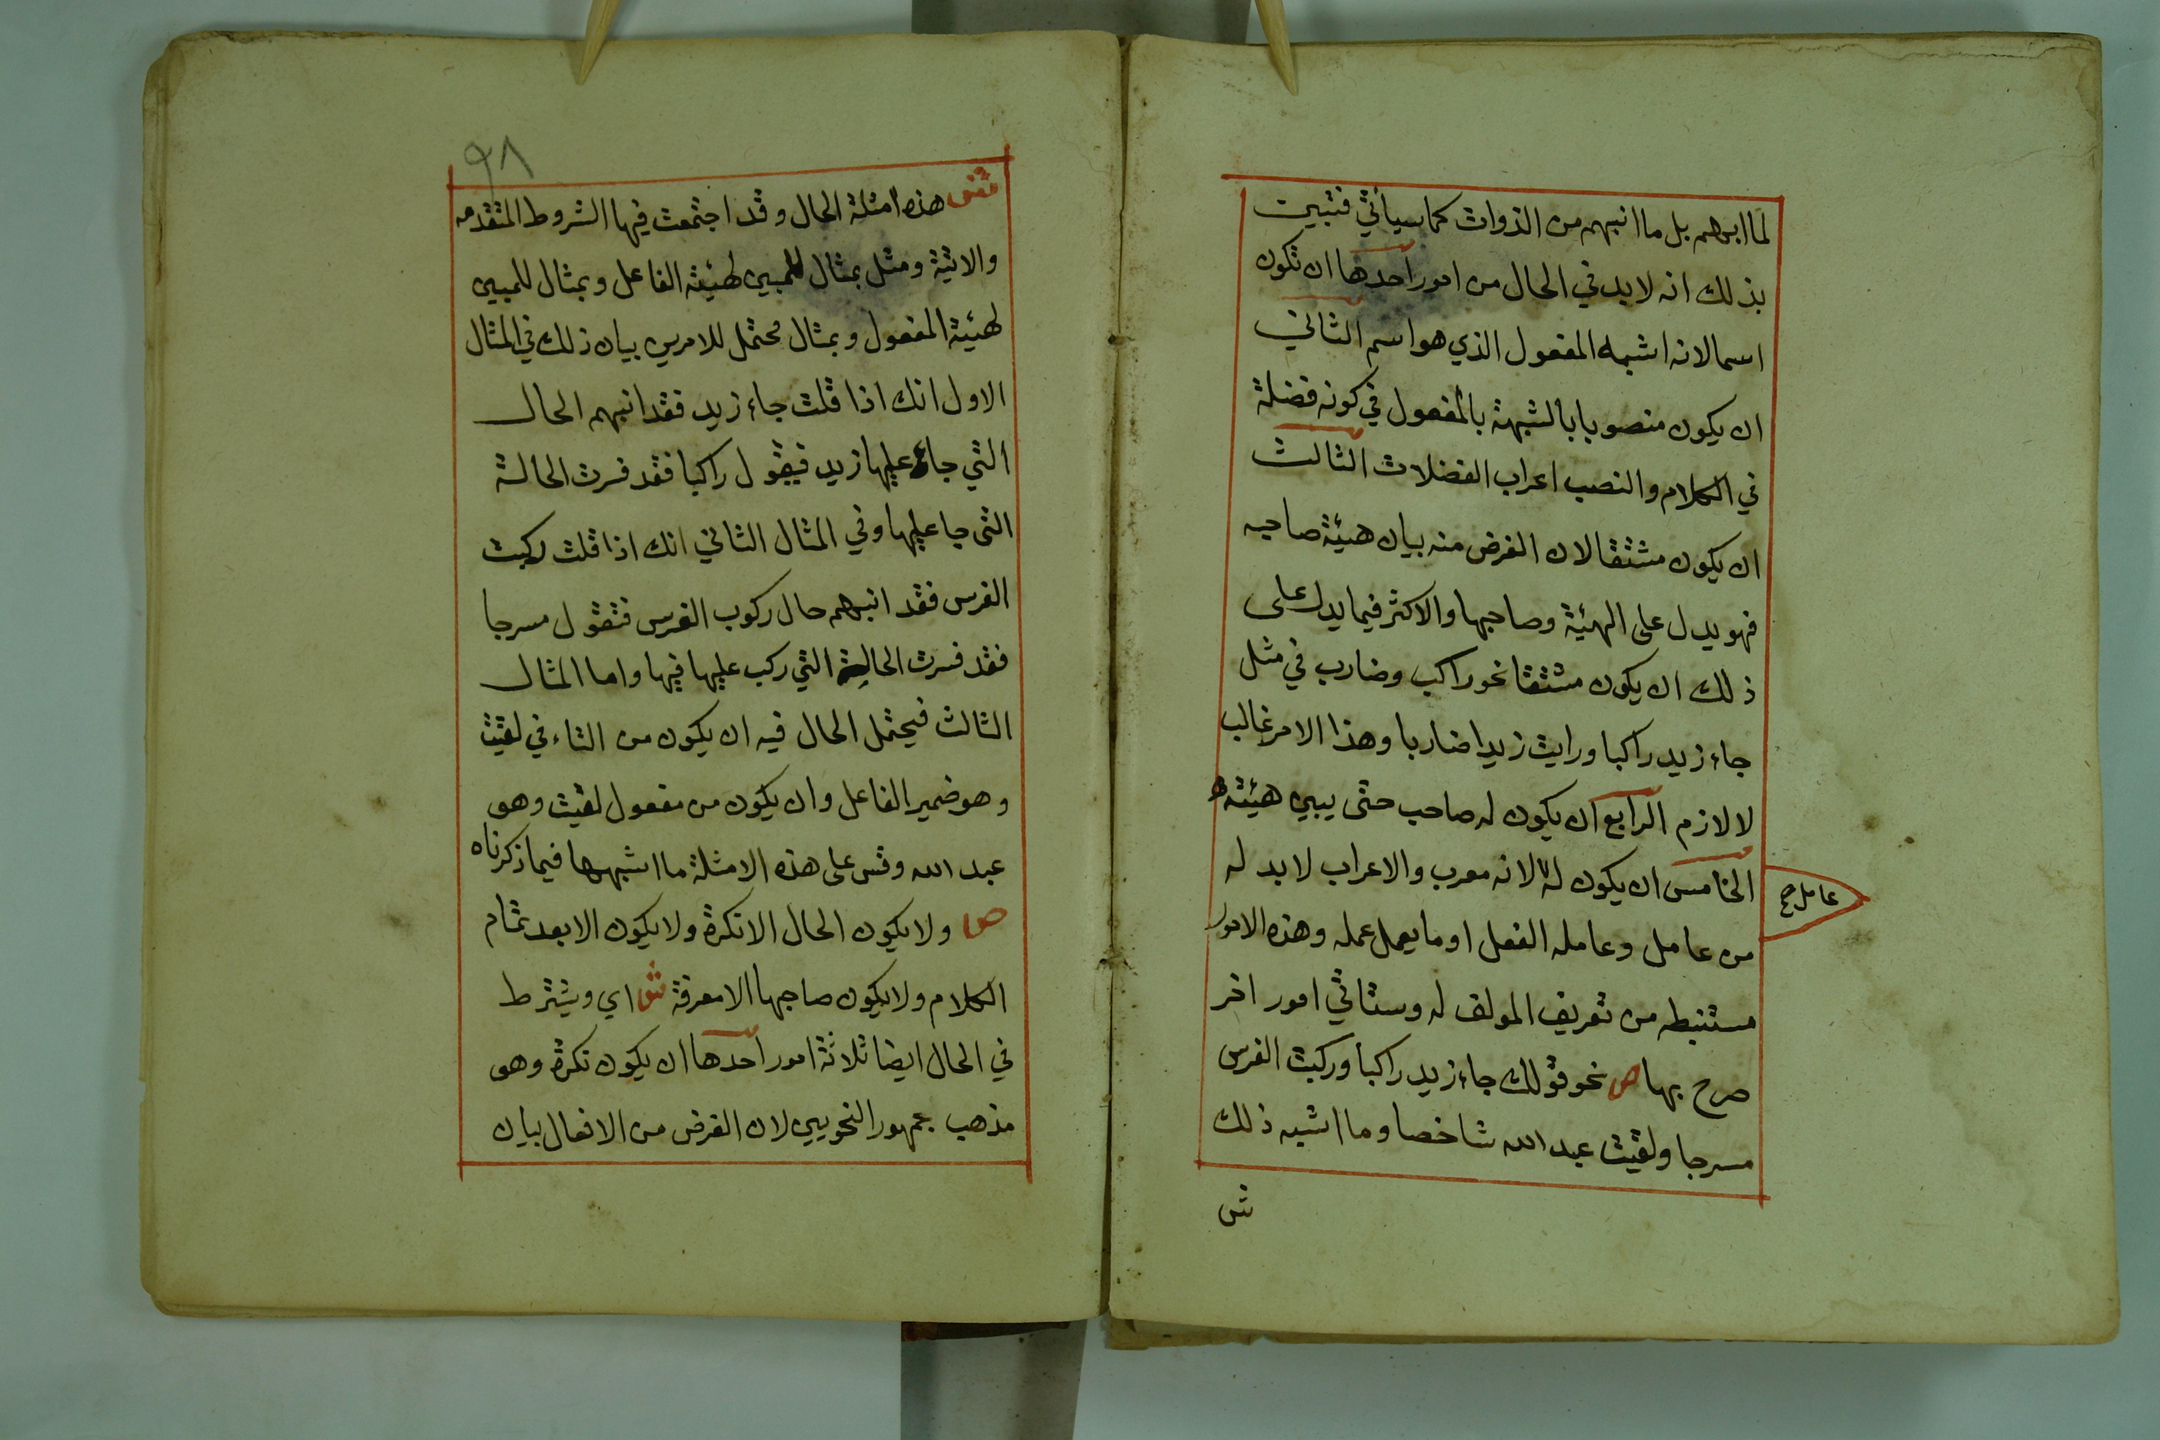 لما ابهم بل ما انبهم من الذوات كما سيأتي فتبين
بذلك انه لا بد في الحال من امور احدها ان تكون
اسما لانه اشبه المفعول الذي هو اسم الثاني
ان يكون منصوبا بالشبهة بالمفعول في كونه فضلة
في الكلام والنصب اعراب الفضلات الثالث
ان يكون مشتقا لان الغرض منه بيان هيئة صاحبه
فهو يدل على الهيئة وصاحبها والاكثر فيما يدل على
ذلك ان يكون مشتقا نحو راكب وضارب في مثل
جاء زيد راكبا ورايت زيدا ضاربا وهذا الامر غالب
لا لازم الرابع ان يكون له صاحب حتى يبين هيئته
الخامس ان يكون له لانه معرب والاعراب لا بد له
عامل صح
من عامل وعامله الفعل او ما يعمل عمله وهذه الامور
مستنبطه من تعريف المولف له وستاتي امور اخر
صرح بها ص نحو قولك جاء زيد راكبا وركبت الفرس
مسرجا ولقيت عبد الله شاخصا وما اشبه ذلك
ش
٩٨
ش هذه امثلة الحال وقد اجتمعت فيها الشروط المتقدمه
والاتية ومثل بمثال للمبين لهيئة الفاعل وبمثال للمبين
لهيئة المفعول وبمثال محتمل للامرين بيان ذلك في المثال
الاول انك اذا قلت جاء زيد فقد انبهم الحال
التي جاء عليها زيد فيقول راكبا فقد فسرت الحالة
التى جا عليها وفي المثال الثاني انك اذا قلت ركبت
الفرس فقد انبهم حال ركوب الفرس فتقول مسرجا
فقد فسرت الحالة التي ركب عليها فيها واما المثال
الثالث فيحتمل الحال فيه ان يكون من التاء في لقيت
وهو ضمير الفاعل وان يكون من مفعول لقيت وهو
عبد الله وقس على هذه الامثلة ما اشبهها فيما ذكرناه
ص ولا يكون الحال الا نكرة ولا يكون الا بعد تمام
الكلام ولا يكون صاحبها الا معرفة ش اي ويشترط
في الحال ايضا ثلاثة امور احدها ان يكون نكرة وهو
مذهب جمهور النحويين لان الغرض من الافعال بيان